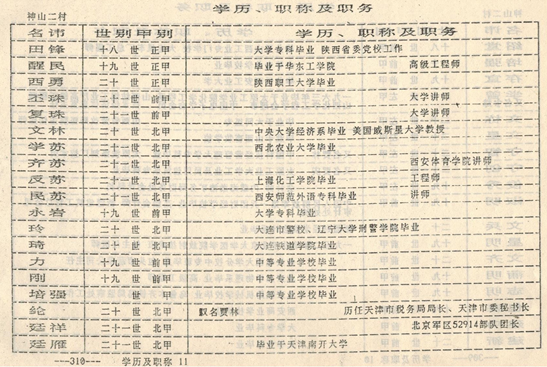 神山二村
学历、职称及职务
名讳 世别甲别 学历、职称及职务
田锋 十八 世 正甲 大学专科毕业 陕西省委党校工作
醒民 十九 世 正甲 毕业于华东工学院 高级工程师
西勇 二十 世 正甲 陕西职工大学毕业
丕珠 二十 世 前甲 大学讲师
复珠 二十 世 前甲 大学讲师
文林 二十 世 北甲 中央大学经济系毕业 美国威斯星大学教授
学苏 二十一世 北甲 西北农业大学毕业
齐苏 二十一世 北甲 西安体育学院讲师
反苏 二十一世 北甲 上海化工学院毕业 工程师
民苏 二十一世 北甲 西安师范外语专科毕业 讲师
永岩 十九 世 前甲 大学专科毕业
玲 二十 世 北甲 大连市警校、辽宁大学刑警学院毕业
琦 二十 世 北甲 大连铁道学院毕业
力 十九 世 前甲 中等专业学校毕业
刚 十九 世 前甲 中等专业学校毕业
培强 世 甲 中等专业学校毕业
纶 二十 世 北甲 叹名贾林 历任天津市税务局局长、天津市委秘书长
廷祥 二十一世 北甲 北京军区52914部队团长
廷雁 二十一世 北甲 毕业于天津南开大学
---310--- 学历及职称 11